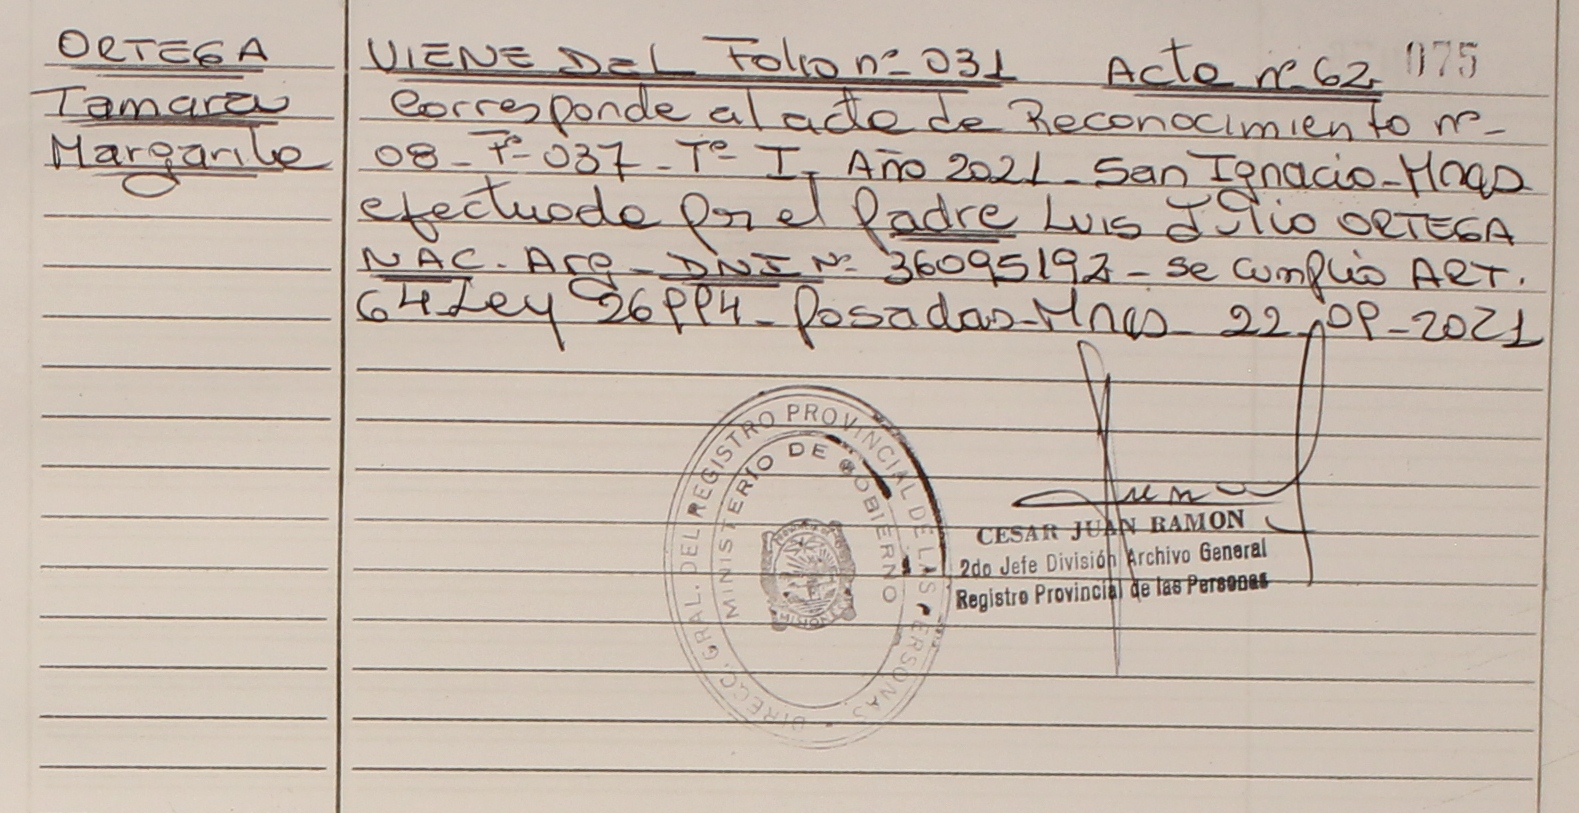 ORTEGA
Tamara
Margarita
VIENE DEL Folio nº 031 Acta nº 62
075
Corresponde al acta de Reconocimiento nº
08 - Fº 037 - Tº I. Año 2021 - San Ignacio - Mnes
efectuado por el padre Luis Julio ORTEGA
NAC. Arg - DNI Nº 36095192 - se cumplió ART.
64 Ley 26994 - Posadas - Mnes - 22-09-2021
DIRECC. GRAL. DEL REGISTRO PROVINCIAL DE LAS PERSONAS
MINISTERIO DE GOBIERNO
CESAR JUAN RAMON
2do Jefe División Archivo General
Registro Provincial de las Personas